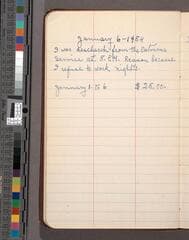 January 6-1954
I was discharged from the Caterer
Service at 5. P.M. Reason because
I refuse to work nights.
January 1 to 6 $ 25.00